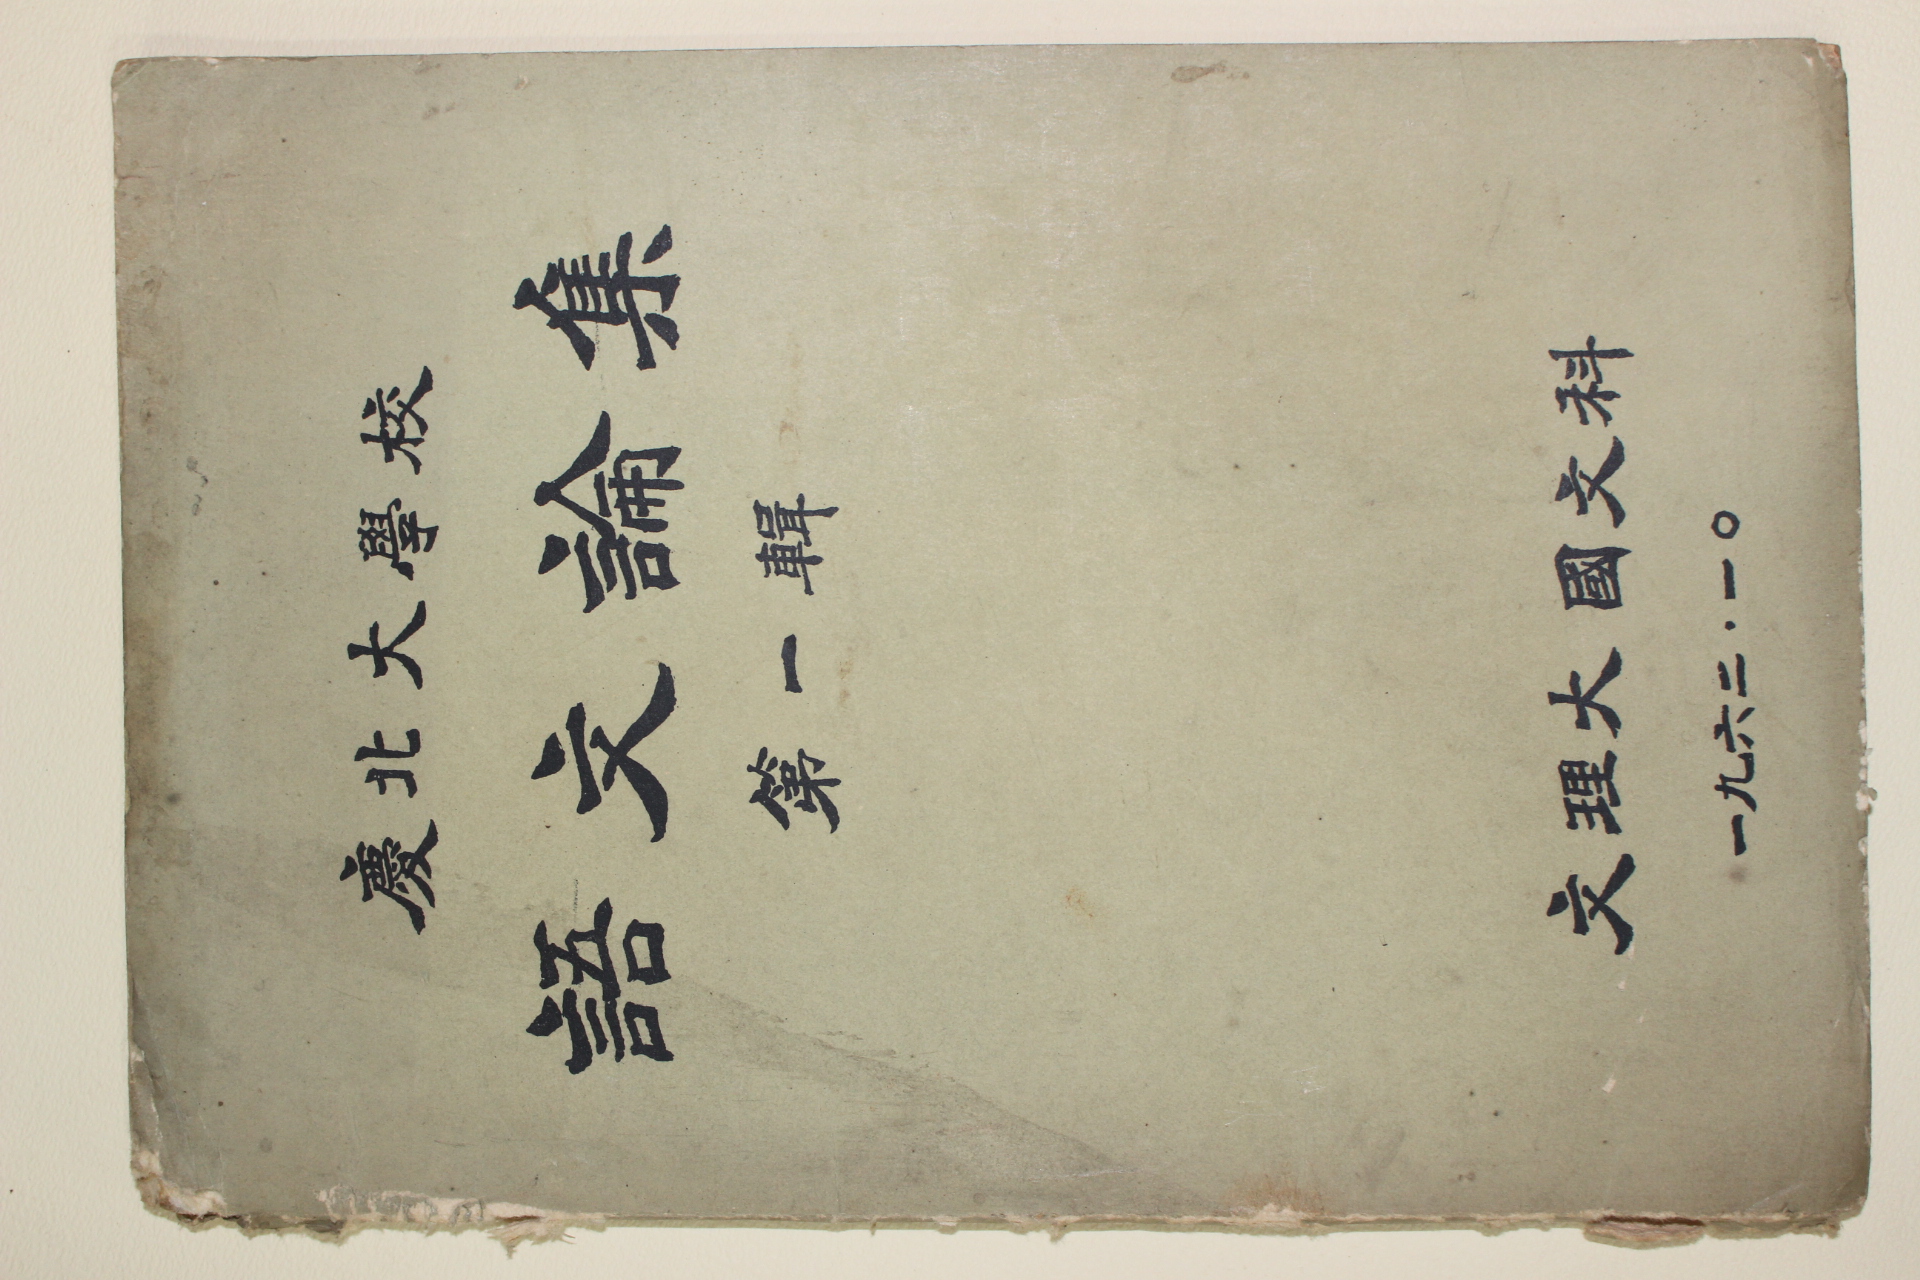 慶北大學校
語文論集
第一輯
文理大國文科
一九六二·一〇